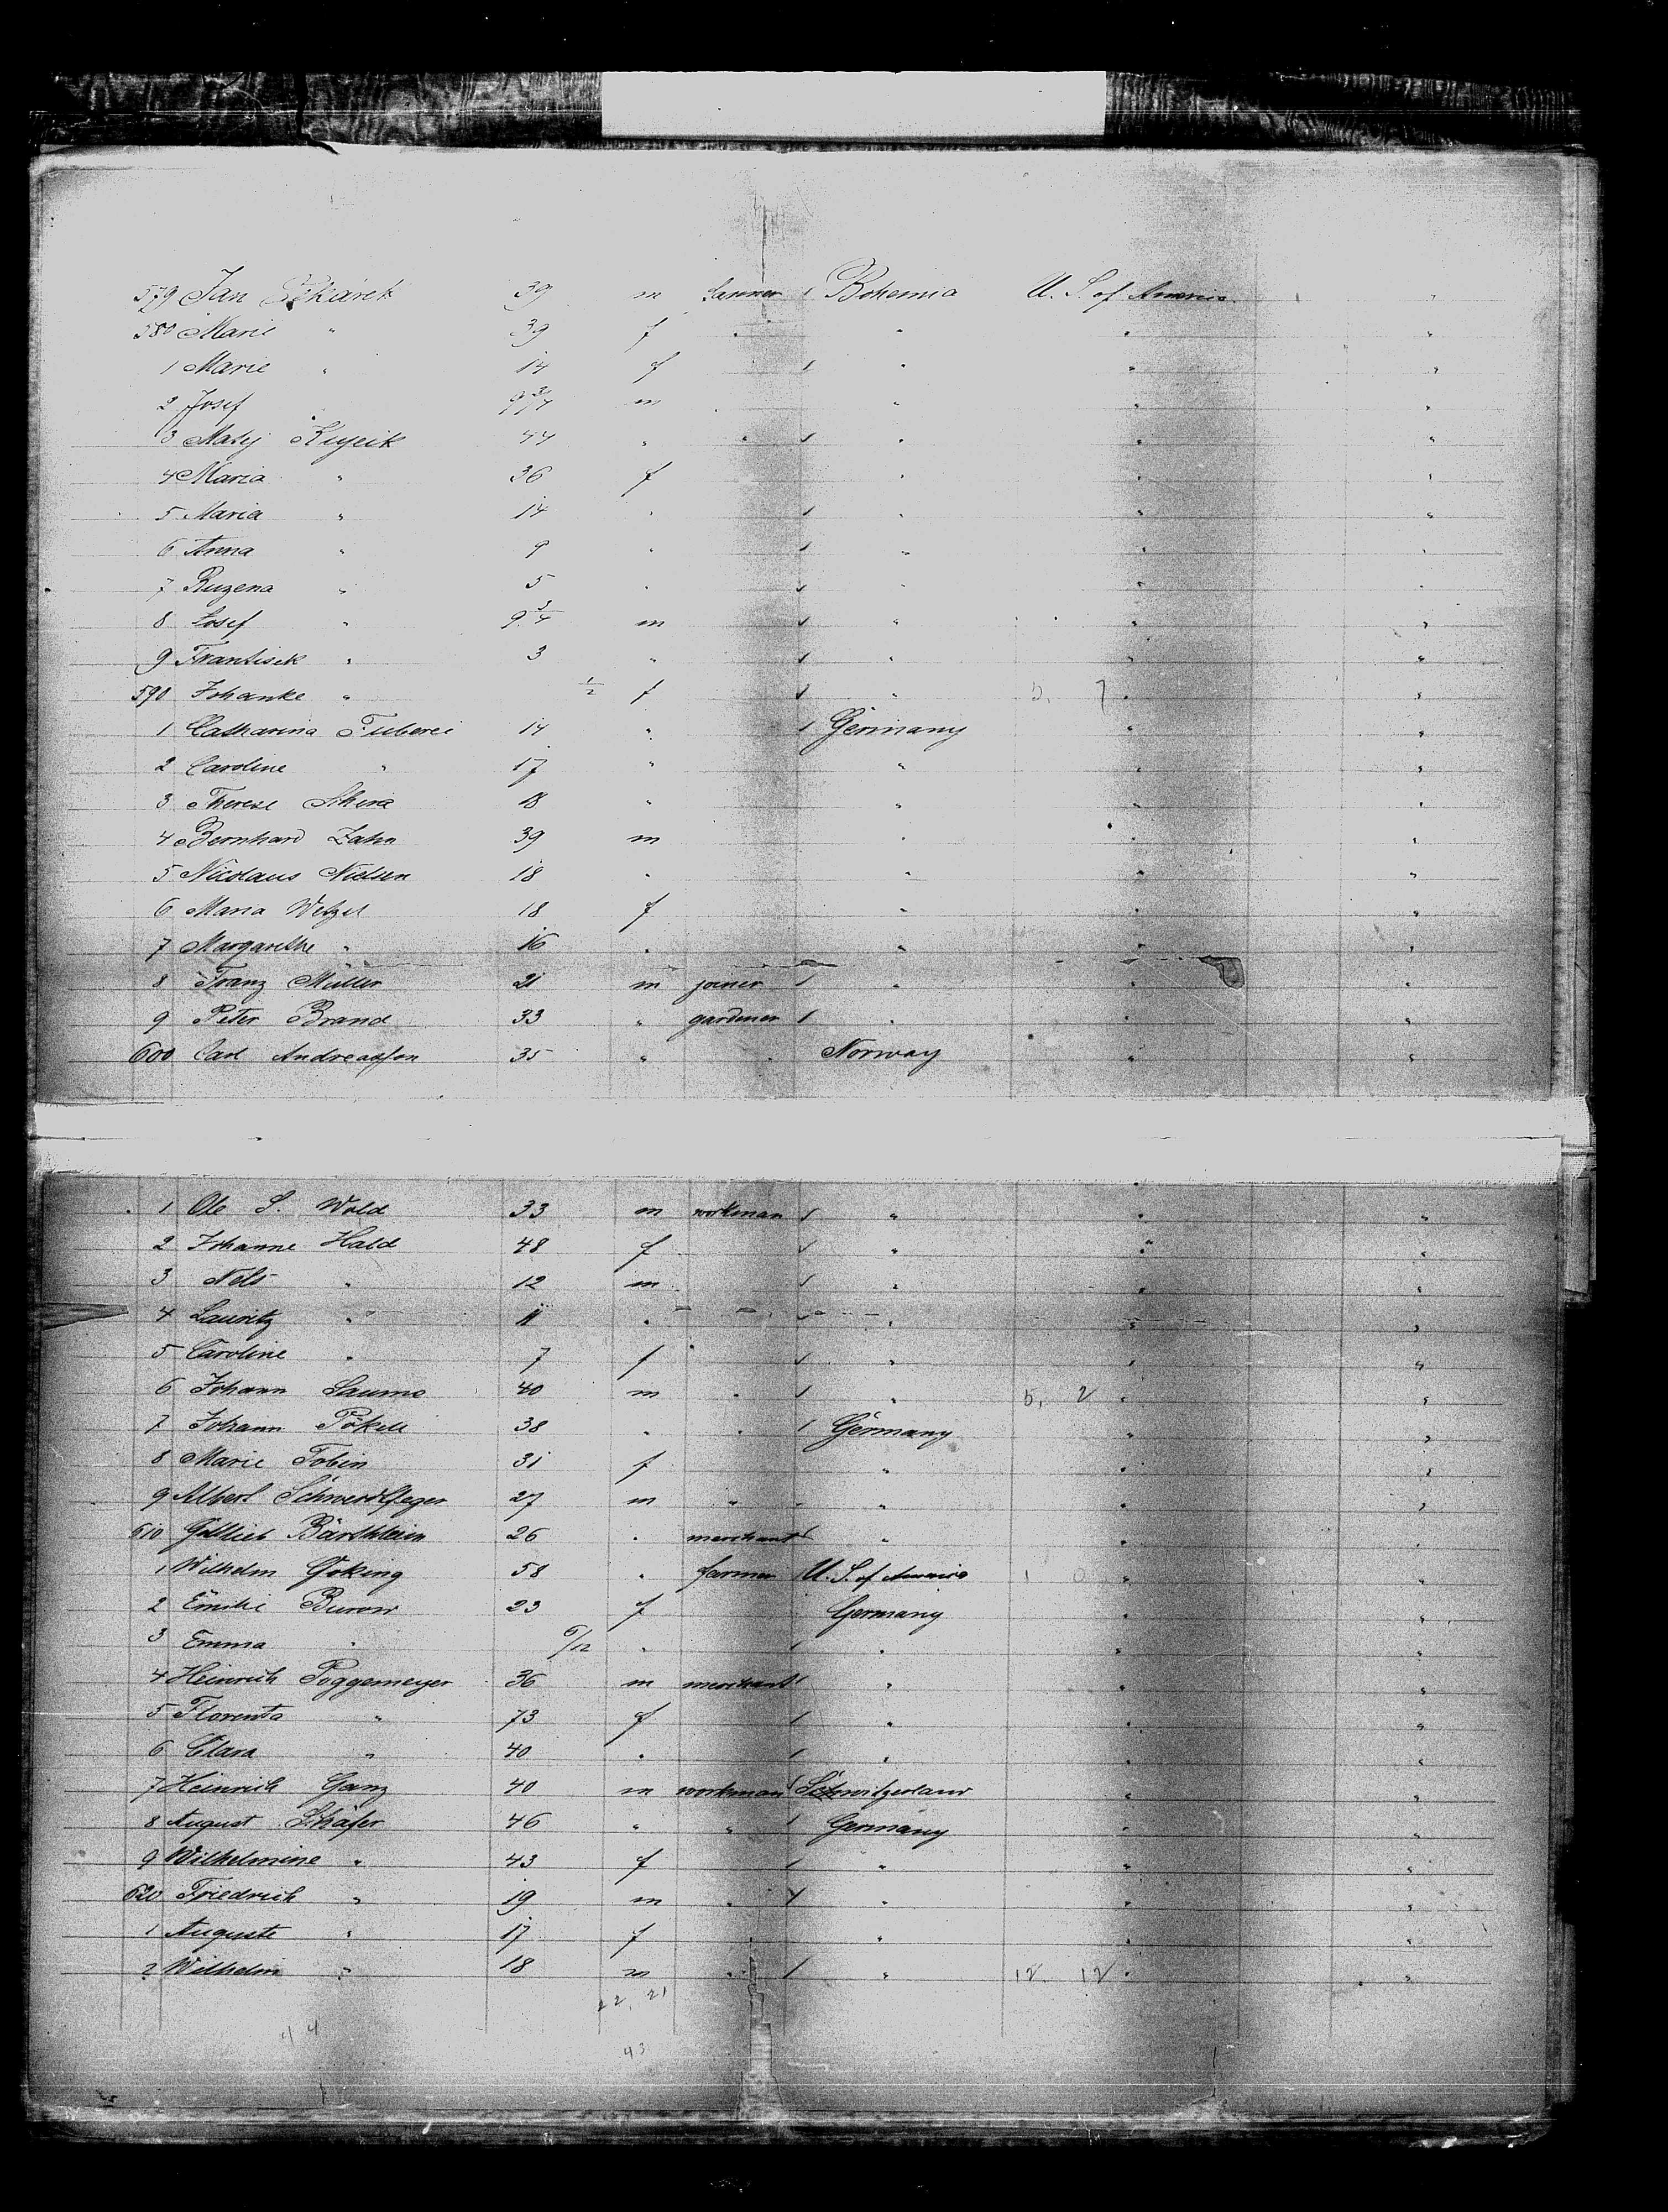 579 Jan Pekárek 39 m farmer / Bohemia U. S. of America "
580 Marie " 39 f " " " "
1 Marie " 14 f / " " "
2 Josef 9 3/4 m " " "
3 Matej 44 " " / " " "
4 Maria " 36 f " " "
5 Maria " 14 " / " " "
6 Anna " 9 " / " " "
7 Ruzena " 5 " / " " "
8 Josef " 9 3/4 m / " " "
9 Frantisek " 3 " / " " "
590 Johanke " 1/2 f / " 5, 7 " "
1 Catharina 14 " / Germany " "
2 Caroline " 17 " " " "
3 Therese 18 " " " "
4 Bernhard Zahn 39 m " " "
5 Nicolaus Nielsen 18 " " " "
6 Maria Wetzel 18 f " " "
7 Margarethe " 16 " " " "
8 Franz Müller 21 m joiner / " " "
9 Peter Brand 33 " gardener / " " "
600 Carl Andreassen 35 " " Norway " "
1 Ole S. Wold 33 m workman / " " "
2 Johanne Hald 48 f / " " "
3 Nels " 12 m / " " "
4 Lauritz " 11 " / " " "
5 Caroline " 7 f / " " "
6 Johann 40 m " / " 5, 2 " "
7 Johann 38 " " / Germany " "
8 Marie Tobin 31 f " " "
9 Albert Schwerdtfeger 27 m " " " "
610 Gottlieb Bärthlein 26 " merchant / " " "
1 Wilhelm Göking 58 " farmer / U. S. of America 1 0 " "
2 Emilie Burow 23 f Germany " "
3 Emma " 6/12 " / " " "
4 Heinrich Poggemeyer 36 m merchant / " " "
5 Florenta " 73 f / " " "
6 Clara " 40 " / " " "
7 Heinrich Ganz 40 m workman / Schwitzerland " "
8 August Schäfer 46 " " / Germany " "
9 Wilhelmine " 43 f / " " "
620 Friedrich " 19 m " / " " "
1 Auguste " 17 f " " "
2 Wilhelm " 18 m " / " 12 12 " "
22, 21
44
43